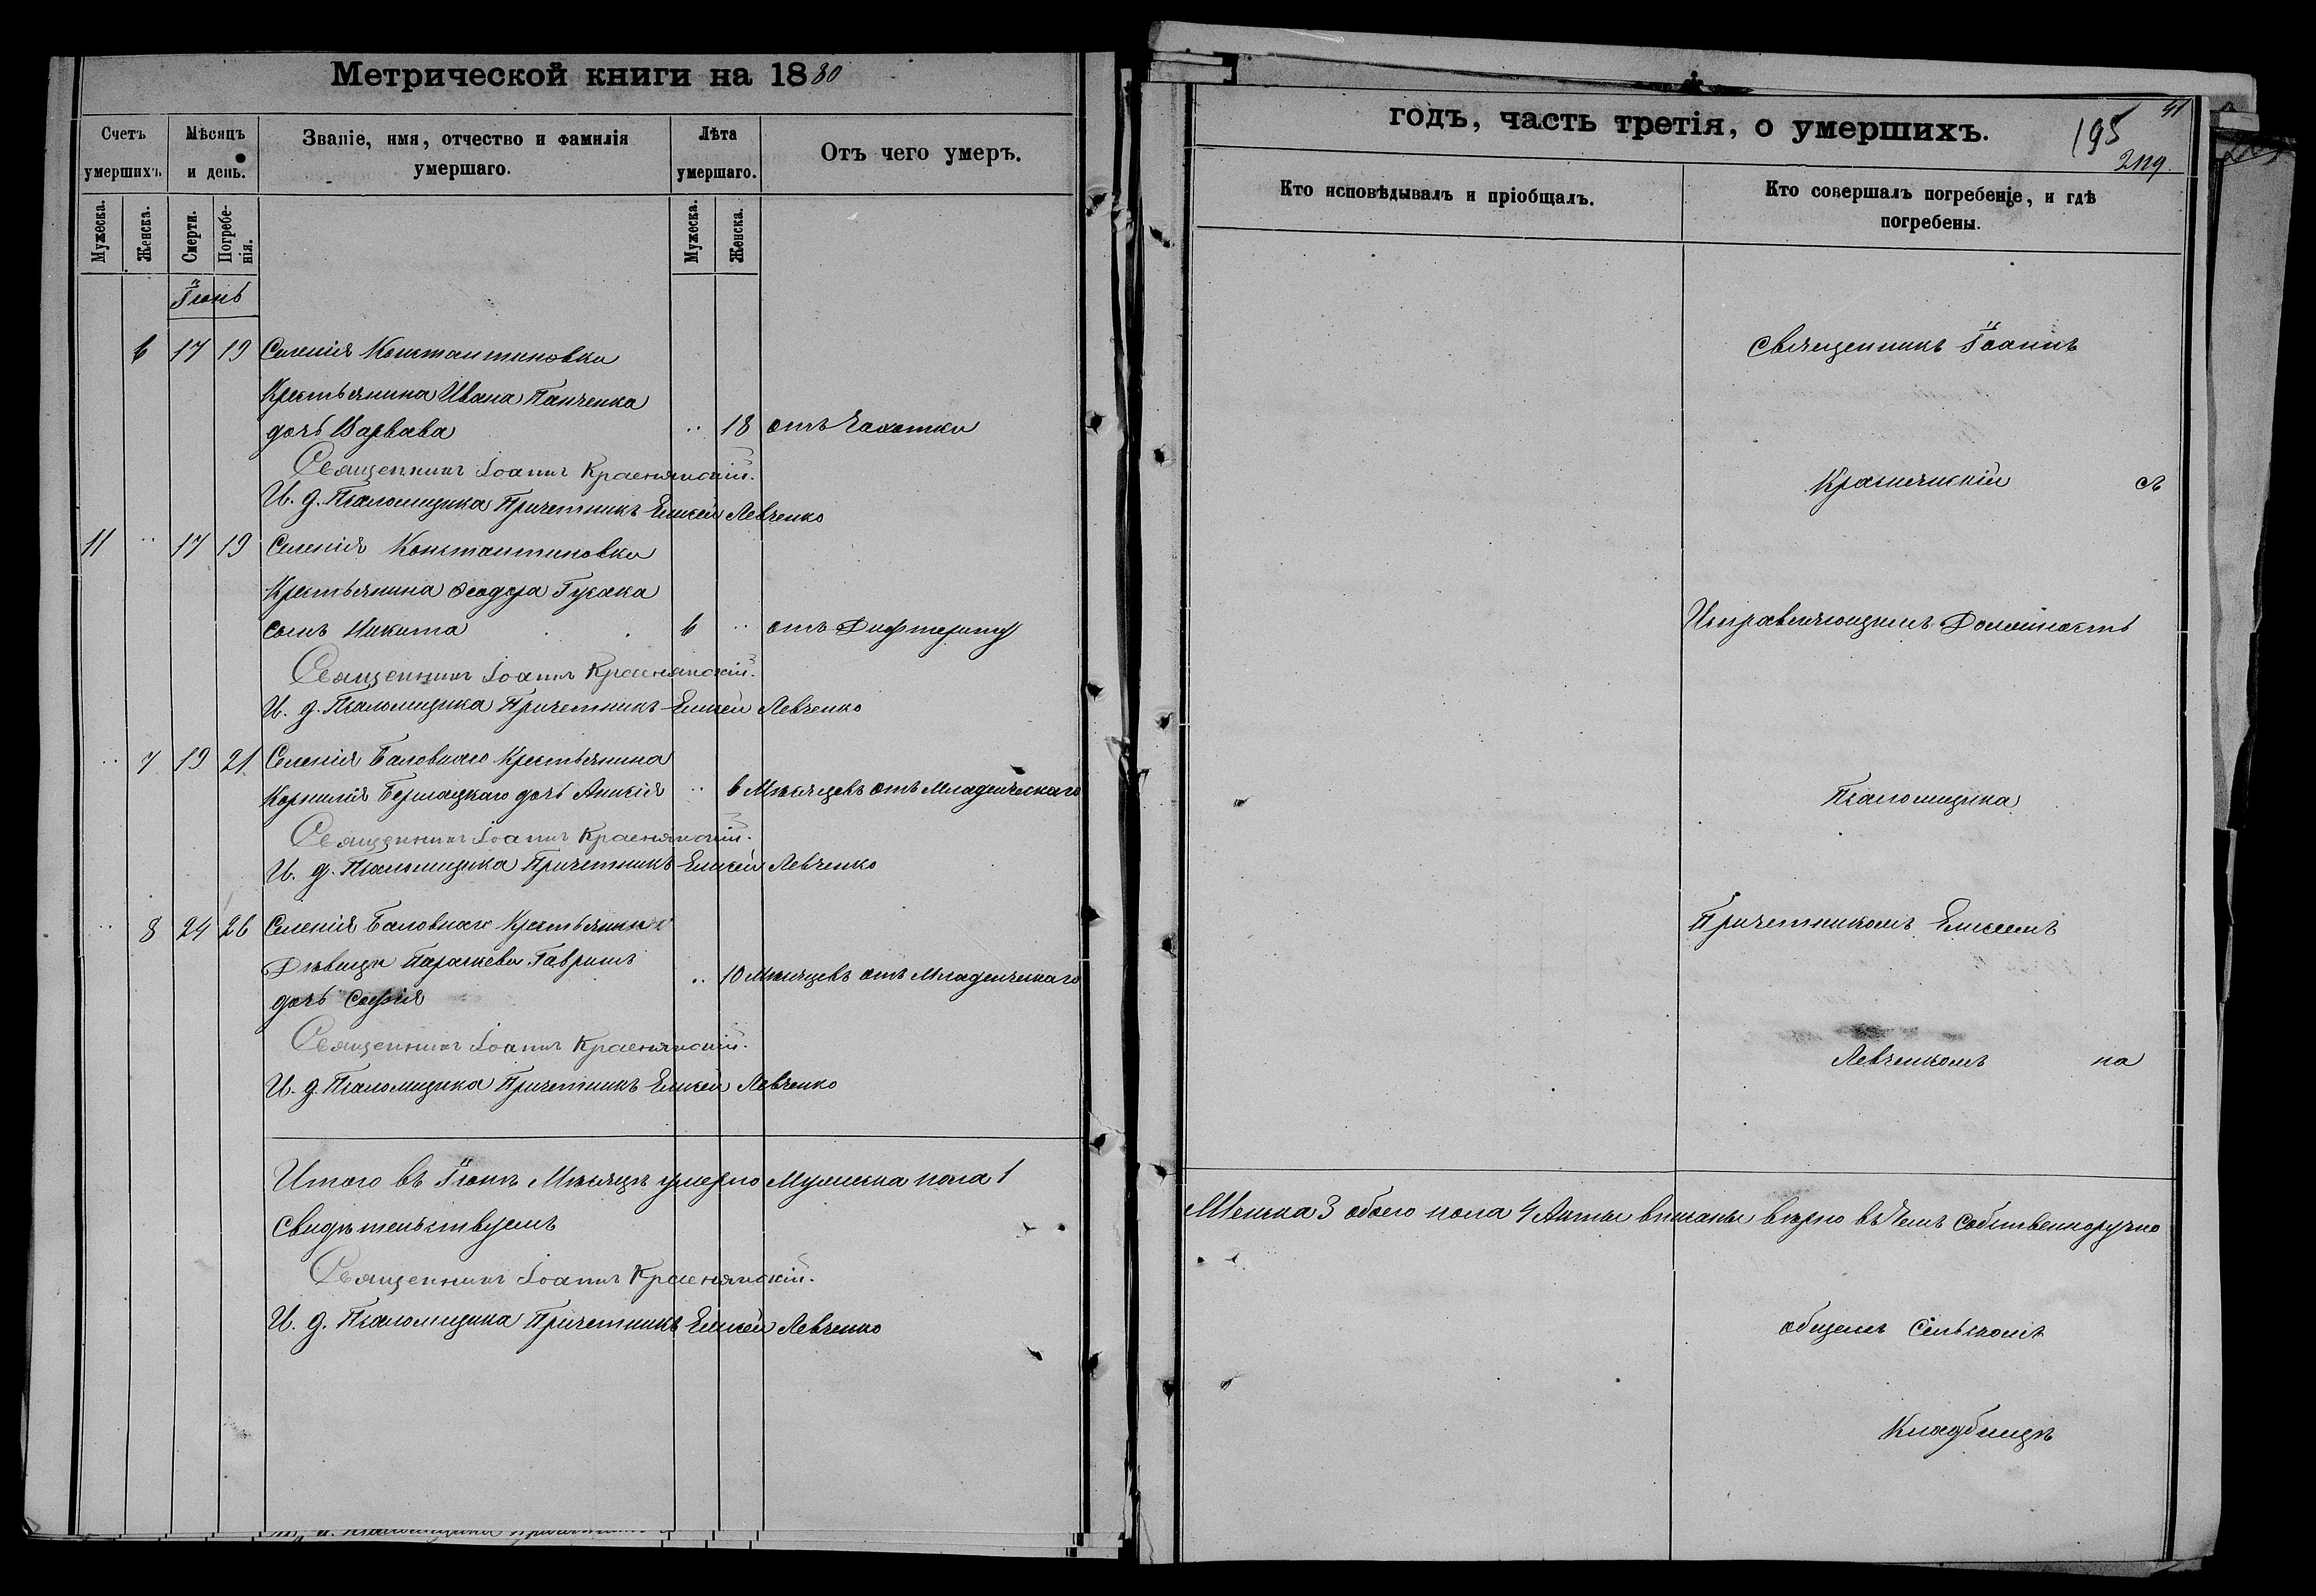 Метрической книги на 1880
Счетъ умершихъ.
Мѣсяцъ и день.
Званіе, имя, отчество и фамилія умершаго.
Лѣта умершаго.
Отъ чего умеръ.
Мужеска.
Женска.
Смерти.
Погребенія.
Мужеска.
Женска.
Іюнь
6 17 19 Селенія Константиновки
Крестьянина Ивана Панченка
дочь Варвава 18 отъ Чахотки
Священникъ Іоаннъ Краснянскій.
И. д. Псаломщика Причетникъ Елисей Левченко
11 17 19 Селенія Константиновки
Крестьянина Ѳеодора Гусака
сынъ Никита 6 отъ Дифтериту
Священникъ Іоаннъ Краснянскій.
И. д. Псаломщика Причетникъ Елисей Левченко
7 19 21 Селенія Баловнаго Крестьянина
Корнилія дочь Анисія 6 Мѣсяцевъ отъ Младенческаго
Священникъ Іоаннъ Краснянскій.
И. д. Псаломщика Причетникъ Елисей Левченко
8 24 26 Селенія Баловнаго Крестьянки
Дѣвицы Параскевы Гавришъ
дочь Софія 10 Мѣсяцевъ отъ Младенческаго
Священникъ Іоаннъ Краснянскій.
И. д. Псаломщика Причетникъ Елисей Левченко
Итого въ Іюнѣ Мѣсяцѣ умерло Мужеска пола 1
Свидѣтельствуемъ
Священникъ Іоаннъ Краснянскій.
И. д. Псаломщика Причетникъ Елисей Левченко
годъ, часть третія, о умершихъ.
41
195
Кто исповѣдывалъ и пріобщалъ.
Кто совершалъ погребеніе, и гдѣ погребены.
Священникъ Іоаннъ
Краснянскій съ
Исправляющимъ Должность
Псаломщика
Причетникомъ Елисеемъ
Левченкомъ на
Женска 3 обоего пола 4 Акты вписаны вѣрно въ чемъ Собственноручно
общемъ Сельскомъ
Кладбищѣ